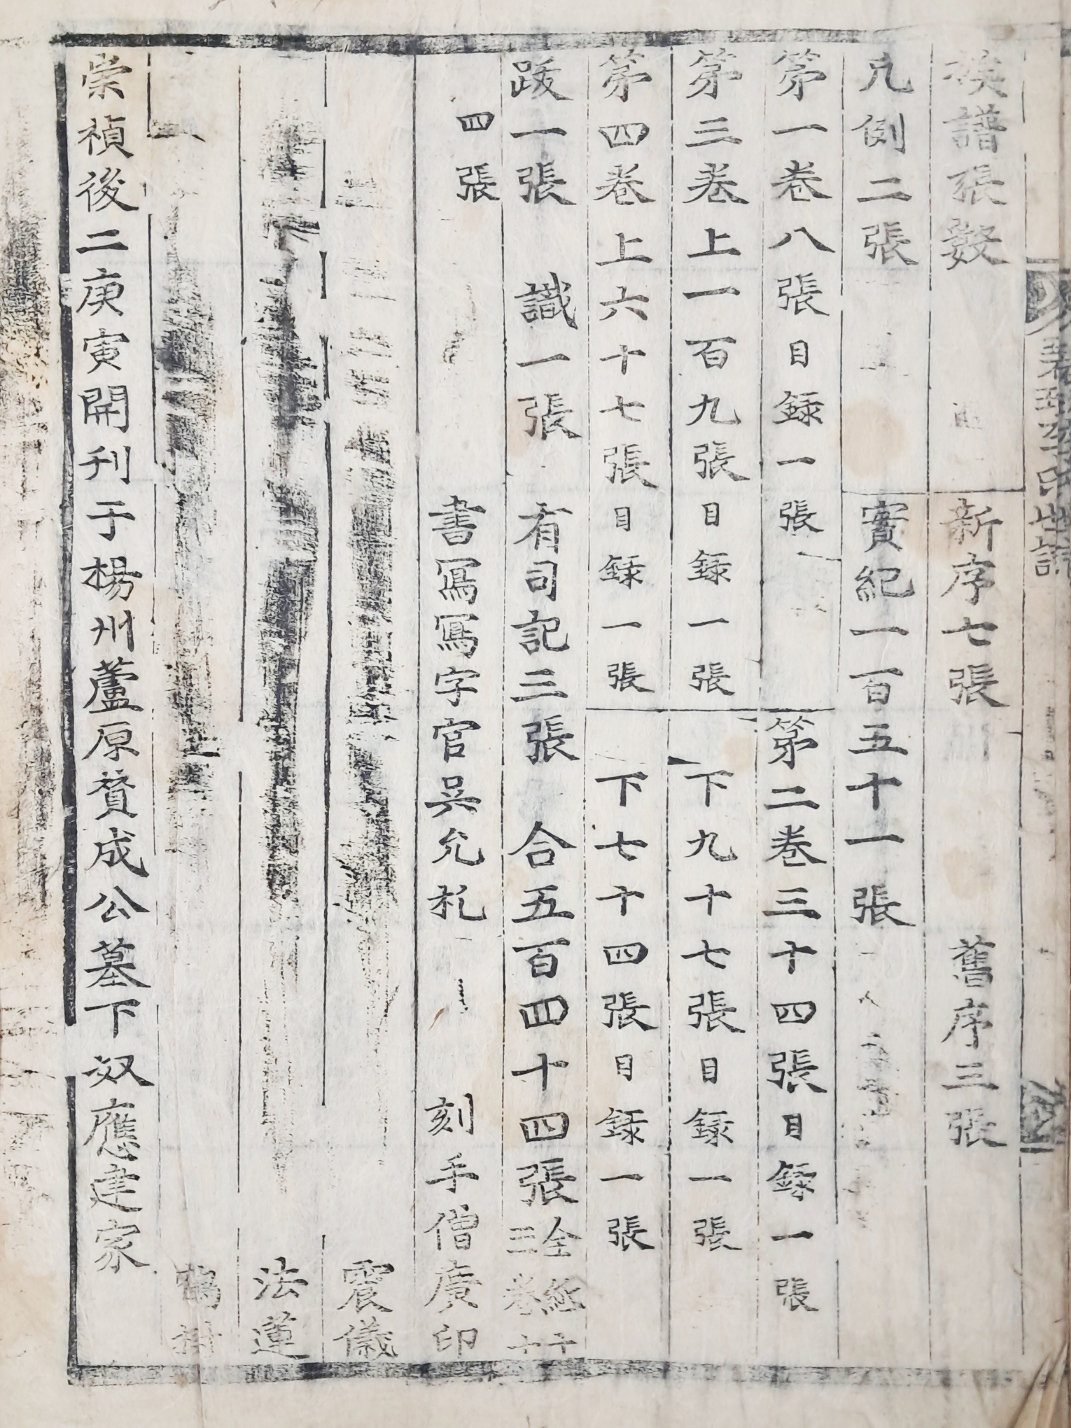 族譜張數 新序七張 舊序三張
凡例二張 實紀一百五十一張
第一卷八張目録一張 第二卷三十四張目録一張
第三卷上一百九張目録一張 下九十七張目録一張
第四卷上六十七張目録一張 下七十四張目録一張
跋一張 識一張 有司記三張 合五百四十四張
四張 書寫寫字官吳允札 刻手僧廣印
震儀
法蓮
崇禎後二庚寅開刊于楊州蘆原贊成公墓下奴應建家